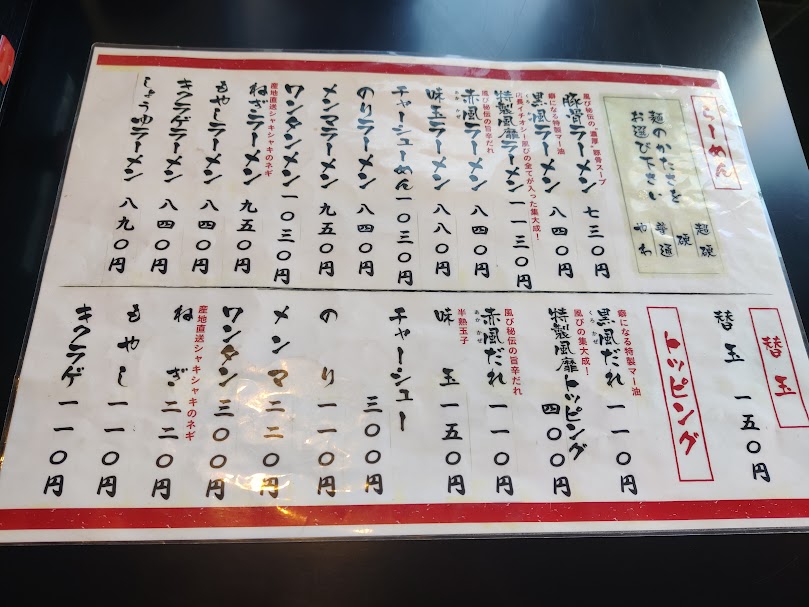 らーめん
麺のかたさを
お選び下さい
超硬
硬
普通
やわ
風び秘伝の"濃厚"豚骨スープ
豚骨ラーメン 七三〇円
癖になる特製マー油
黒風ラーメン 八四〇円
店長イチオシ!風びの全てが入った集大成!
特製風靡ラーメン 一一三〇円
風び秘伝の旨辛だれ
赤風ラーメン 八四〇円
味玉ラーメン 八八〇円
チャーシューめん 一〇三〇円
のりラーメン 八四〇円
メンマラーメン 九五〇円
ワンタンメン 一〇三〇円
産地直送シャキシャキのネギ
ねぎラーメン 九五〇円
もやしラーメン 八四〇円
キクラゲラーメン 八四〇円
しょうゆラーメン 八九〇円
替玉
替玉 一五〇円
トッピング
癖になる特製マー油
黒風だれ 一一〇円
くろかぜ
風びの集大成!
特製風靡トッピング 四〇〇円
風び秘伝の旨辛だれ
赤風だれ 一一〇円
あかかぜ
味玉 一五〇円
半熟玉子
チャーシュー 三〇〇円
のり 一一〇円
メンマ 二二〇円
ワンタン 三〇〇円
産地直送シャキシャキのネギ
ねぎ 二二〇円
もやし 一一〇円
キクラゲ 一一〇円